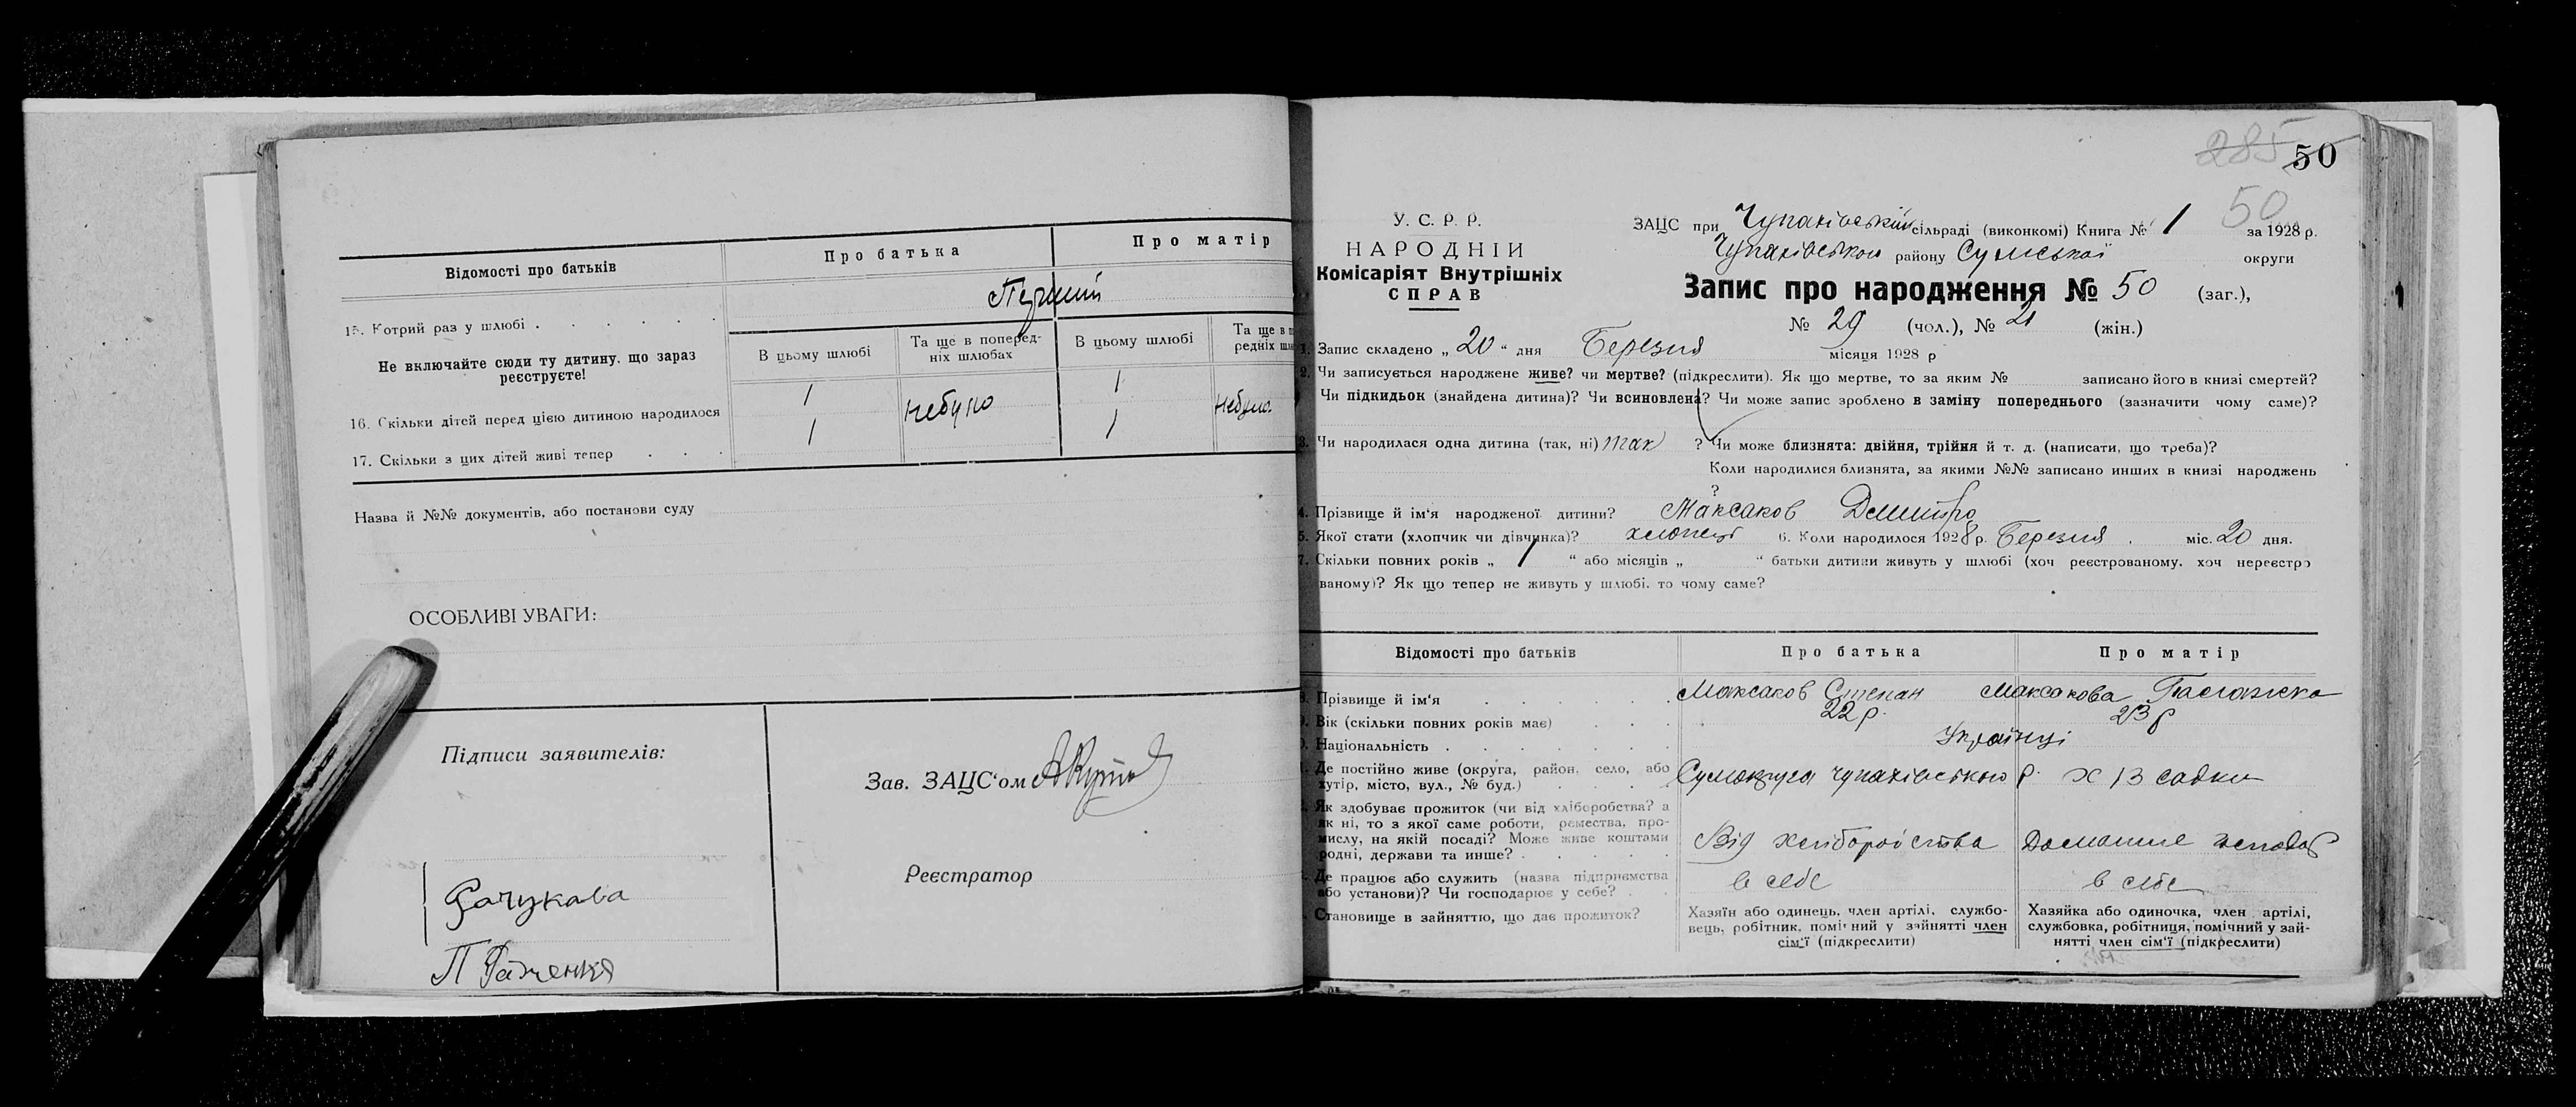 Відомості про батьків
Про батька
Про матір
15. Котрий раз у шлюбі
Перший
Не включайте сюди ту дитину, що зараз
реєструєте!
В цьому шлюбі
Та ще в поперед-
ніх шлюбах
В цьому шлюбі
Та ще в п
редніх шлю
16. Скільки дітей перед цією дитиною народилося
1
небуло
1
небуло
17. Скільки з цих дітей живі тепер
1
1
Назва й №№ документів, або постанови суду
ОСОБЛИВІ УВАГИ:
Підписи заявителів:
Зав. ЗАЦС'ом
Реєстратор
285 50
50
У. С. Р. Р.
НАРОДНІЙ
Комісаріят Внутрішніх
СПРАВ
ЗАЦС при Чупахівській сільраді (виконкомі) Книга № 1 за 1928 р.
Чупахівського району Сумської округи
Запис про народження № 50 (заг.),
№ 29 (чол.), № 21 (жін.)
1. Запис складено „ 20 “ дня Березня місяця 1928 р
2. Чи записується народжене живе? чи мертве? (підкреслити). Як що мертве, то за яким № записано його в книзі смертей?
Чи підкидьок (знайдена дитина)? Чи всиновлена? Чи може запис зроблено в заміну попереднього (зазначити чому саме)?
3. Чи народилася одна дитина (так, ні) так ? Чи може близнята: двійня, трійня й т. д. (написати, що треба)?
Коли народилися близнята, за якими №№ записано инших в книзі народжень
?
4. Прізвище й ім'я народженої дитини? Максаков Дмитро
5. Якої стати (хлопчик чи дівчинка)? хлопець 6. Коли народилося 1928 р. Березня . міс. 20 дня.
7. Скільки повних років „ 1 “ або місяців „ “ батьки дитини живуть у шлюбі (хоч реєстрованому, хоч нереєстро
ваному)? Як що тепер не живуть у шлюбі, то чому саме?
Відомості про батьків
Про батька
Про матір
8. Прізвище й ім'я
Максаков Степан
Максакова
9. Вік (скільки повних років має)
22 р.
23 р
Національність
Українці
Де постійно живе (округа, район, село, або
хутір, місто, вул., № буд.)
Сумокруга Чупахівського р. х 13 садки
Як здобуває прожиток (чи від хліборобства? а
як ні, то з якої саме роботи, ремества, про-
мислу, на якій посаді? Може живе коштами
родні, держави та инше?
Від хліборобства
Домашнє
Де працює або служить (назва підприємства
або установи)? Чи господарює у себе?
в себе
в себе
Становище в зайняттю, що дає прожиток?
Хазяїн або одинець, член артілі, службо-
вець, робітник, помічний у зайнятті член
сім'ї (підкреслити)
Хазяйка або одиночка, член артілі,
службовка, робітниця, помічний у зай-
нятті член сім'ї (підкреслити)